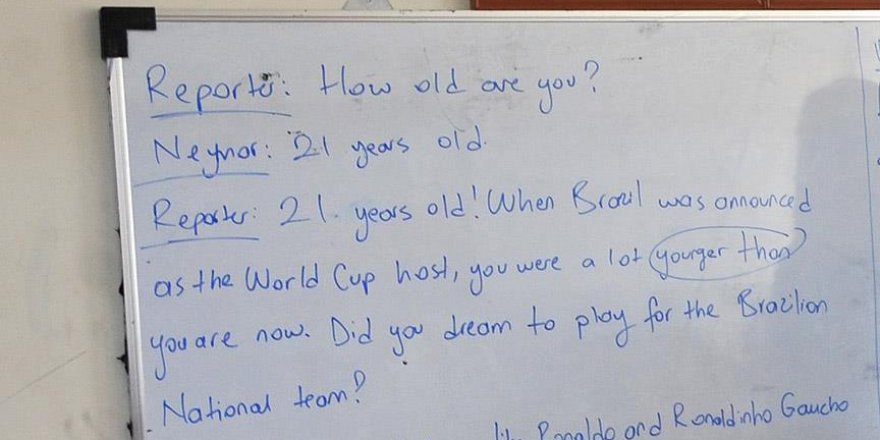 Reporter: How old are you?
Neymar: 21 years old.
Reporter: 21. years old! When Brazil was announced
as the World Cup host, you were a lot younger than
you are now. Did you dream to play for the Brazilian
National team?
Ronaldo and Ronaldinho Gaucho